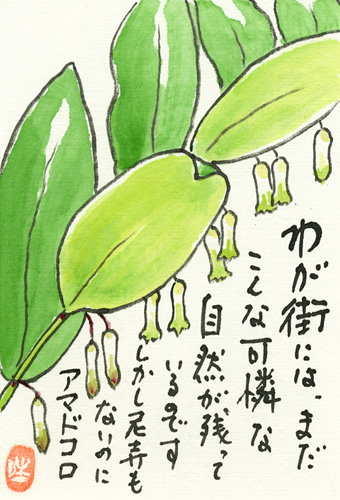 わが街には、まだ
こんな可憐な
自然が残って
いるのです
しかし尼寺も
ないのに
アマドコロ